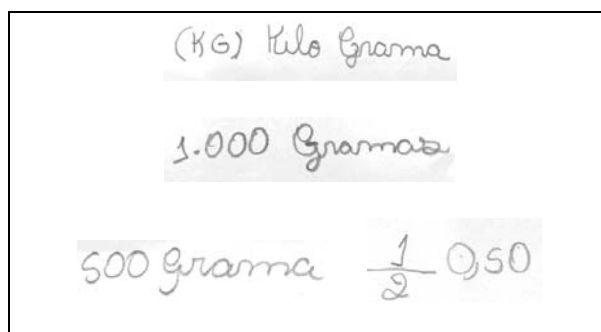 (KG) Kilo Grama
1.000 Gramas
500 grama 1/2 0,50